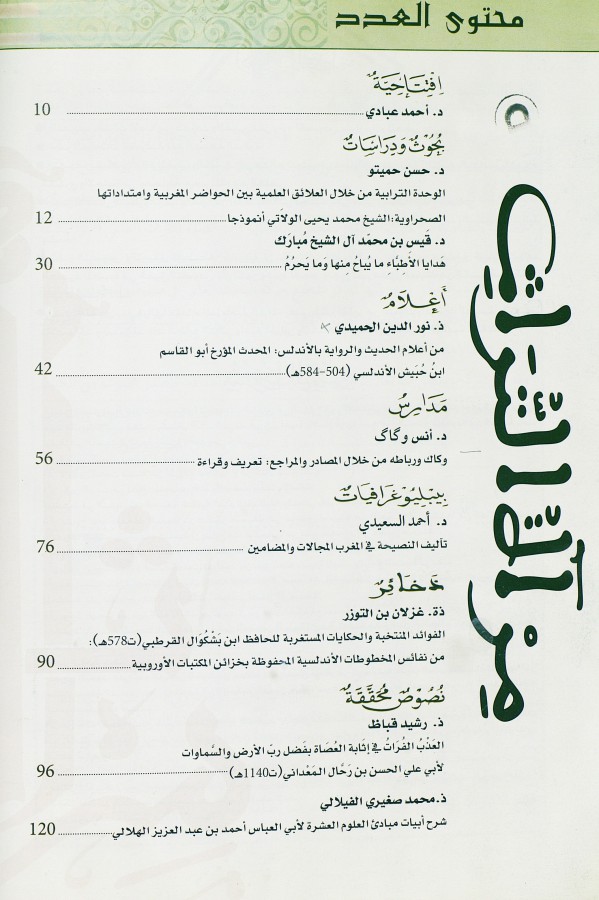 محتوى العدد
مرآة التراث
اِفْتِتَاحِيَّةٌ
د. أحمد عبادي 10
بُحُوثٌ وَدِرَاسَاتٌ
د. حسن حميتو
الوحدة الترابية من خلال العلائق العلمية بين الحواضر المغربية وامتداداتها
الصحراوية:الشيخ محمد يحيى الولاتي أنموذجا 12
د. قَيس بن محمّد آل الشيخ مُبارَك
هَدايا الأطِبَّاءِ ما يُباحُ مِنها وَما يَحرُمُ 30
أَعْلَامٌ
ذ. نور الدين الحميدي
من أعلام الحديث والرواية بالأندلس: المحدث المؤرخ أبو القاسم
ابنُ حُبَيش الأندلسي (504-584هـ) 42
مَدَارِسُ
د. أنس وگاگ
وكاك ورباطه من خلال المصادر والمراجع: تعريف وقراءة 56
بِيبْلِيُوغْرَافِيَاتٌ
د. أحمد السعيدي
تأليف النصيحة في المغرب المجالات والمضامين 76
ذَخَائِرُ
ذة. غزلان بن التوزر
الفوائد المنتخبة والحكايات المستغربة للحافظ ابن بَشْكُوَال القرطبي(ت578هـ):
من نفائس المخطوطات الأندلسية المحفوظة بخزائن المكتبات الأوروبية 90
نُصُوصٌ مُحَقَّقَةٌ
ذ. رشيد قباظ
العَذْبُ الفُرَاتُ في إثَابة العُصَاة بفَضل ربّ الأرض والسَّماوات
لأبي علي الحسن بن رَحَّال المَعْداني(ت1140هـ) 96
ذ.محمد صغيري الفيلالي
شرح أبيات مبادئ العلوم العشرة لأبي العباس أحمد بن عبد العزيز الهلالي 120